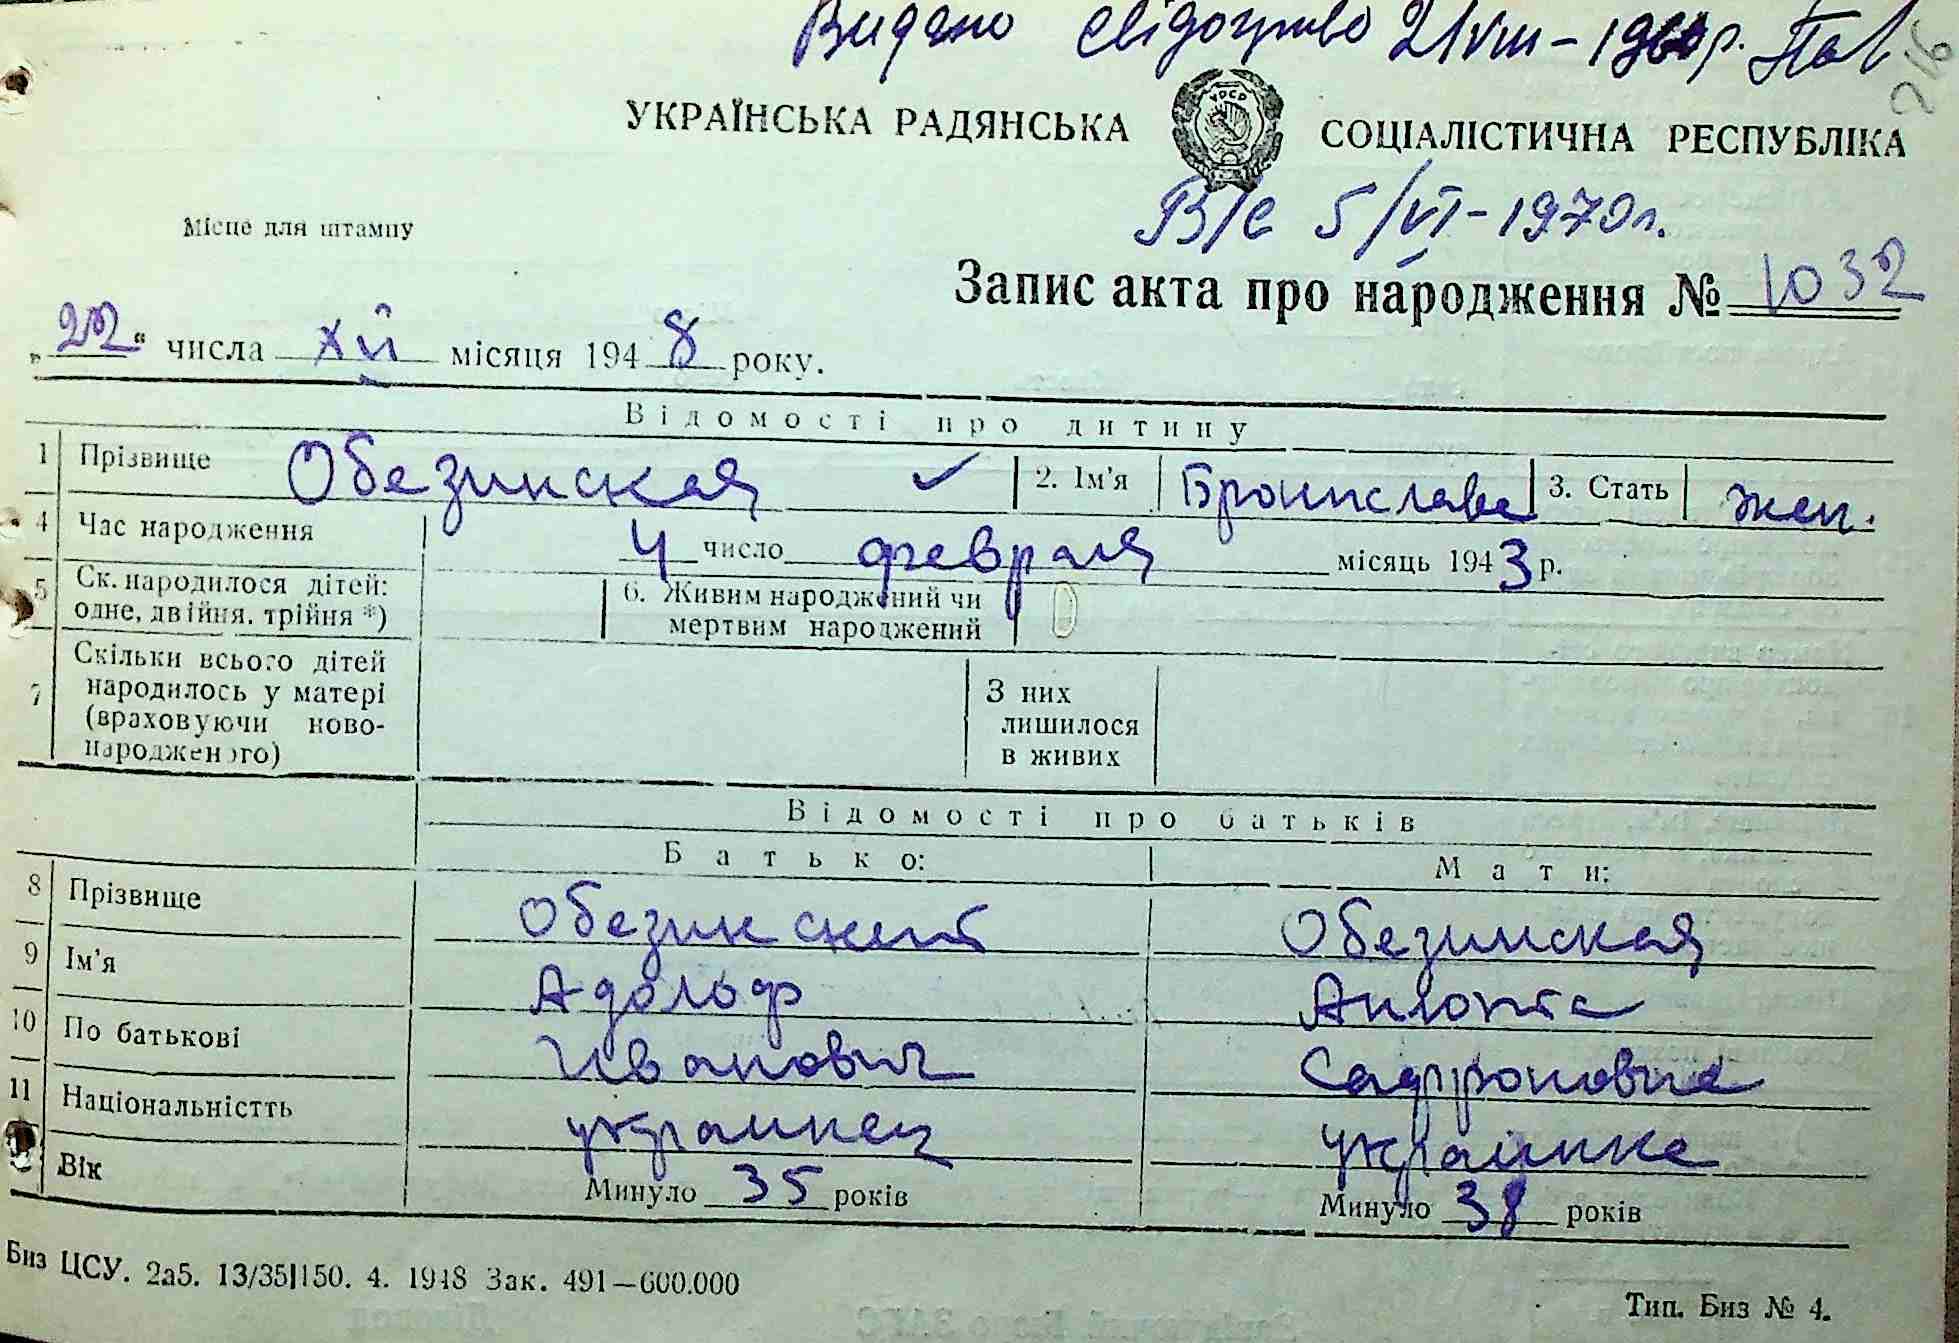 Видано свідоцтво 21/VIII - 1960р.
216
УКРАЇНСЬКА РАДЯНСЬКА УРСР СОЦІАЛІСТИЧНА РЕСПУБЛІКА
В/с 5/VI - 1970г.
Місце для штампу
Запис акта про народження № 1032
„22“ числа XII місяця 1948 року.
Відомості про дитину
1 Прізвище Обезинская ✓ 2. Ім'я Бронислава 3. Стать жен.
4 Час народження 4 число февраля місяць 1943 р.
5 Ск. народилося дітей: одне, двійня, трійня *) 6. Живим народжений чи мертвим народжений
7 Скільки всього дітей народилось у матері (враховуючи новонародженого) З них лишилося в живих
Відомості про батьків
Батько: Мати:
8 Прізвище Обезинский Обезинская
9 Ім'я Адольф
10 По батькові Иванович Сафроновна
11 Національністть украинец украинка
Вік Минуло 35 років Минуло 38 років
Биз ЦСУ. 2а5. 13/35|150. 4. 1948 Зак. 491—600.000
Тип. Биз № 4.